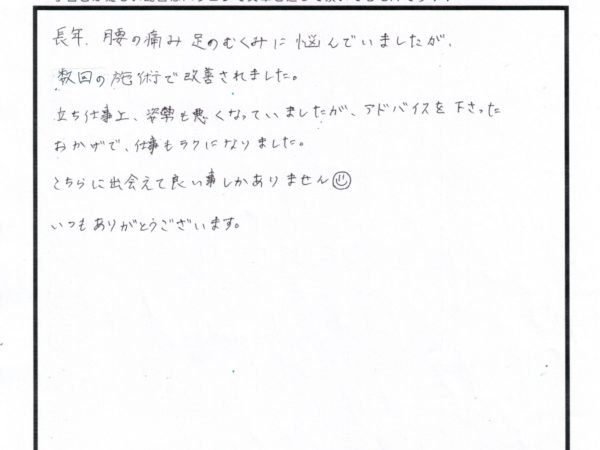 長年、腰の痛み 足のむくみに 悩んでいましたが、
数回の施術で改善されました。
立ち仕事上、姿勢も悪くなっていましたが、アドバイスを下さった
おかげで、仕事もラクになりました。
こちらに出会えて良い事しかありません☺
いつもありがとうございます。